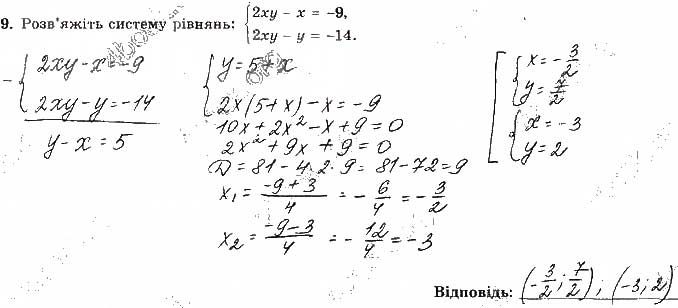 9. Розв'яжіть систему рівнянь: {2xy – x = –9,
2xy – y = –14.
– {2xy – x = –9
2xy – y = –14
y – x = 5
{y = 5 + x
2x(5+x) – x = –9
10x + 2x² – x + 9 = 0
2x² + 9x + 9 = 0
D = 81 – 4·2·9 = 81 – 72 = 9
x₁ = (–9+3)/4 = –6/4 = –3/2
x₂ = (–9–3)/4 = –12/4 = –3
[{x = –3/2
y = 7/2
{x = –3
y = 2
Відповідь: (–3/2; 7/2); (–3; 2)